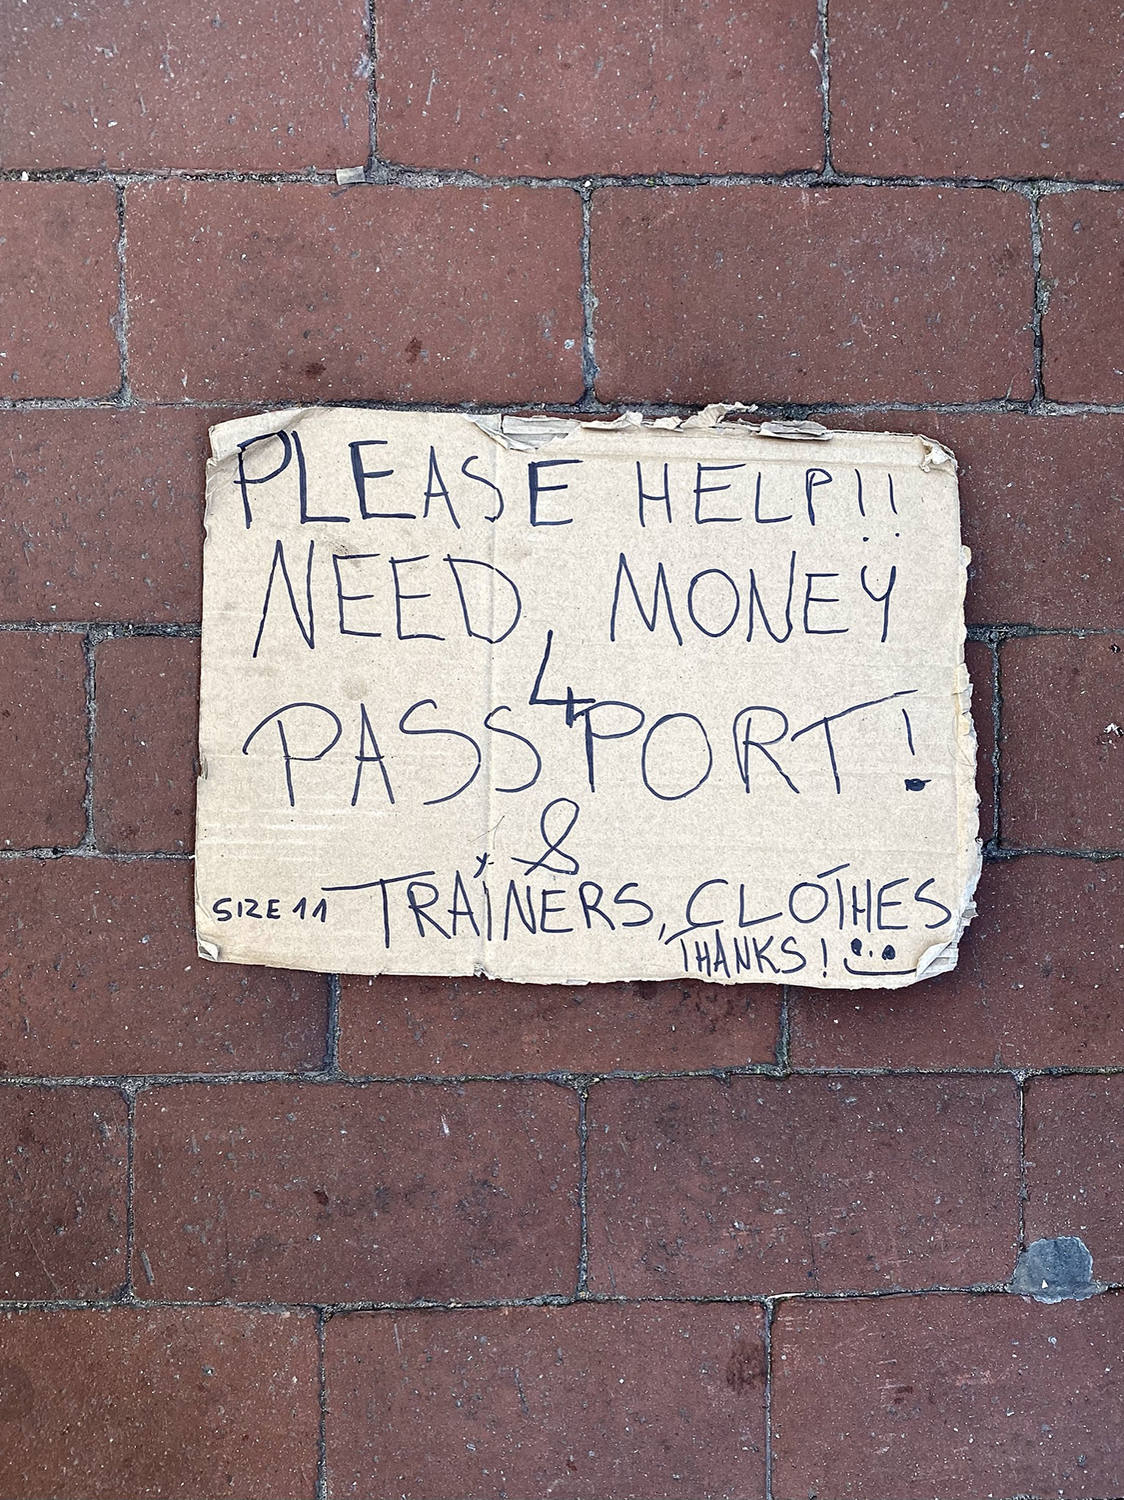 PLEASE HELP!!
NEED MONEY
4
PASSPORT!
&
SIZE 11 TRAINERS, CLOTHES
THANKS!